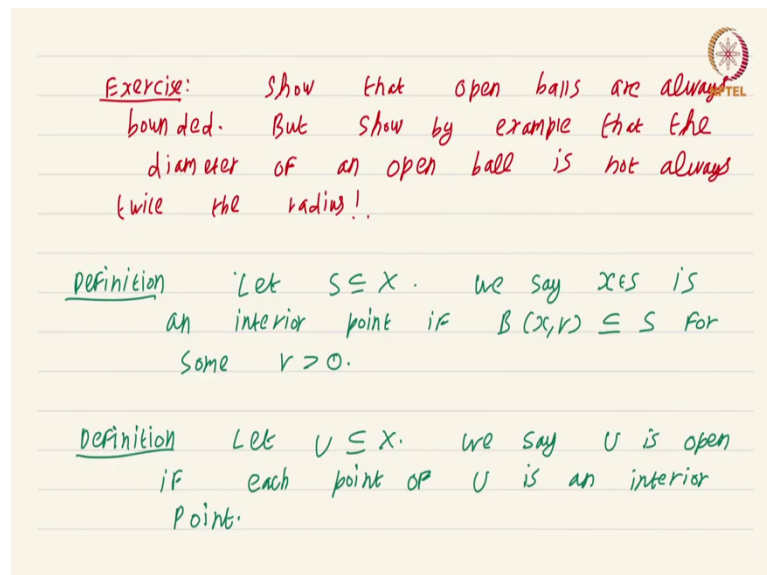 Exercise: Show that open balls are always
bounded. But show by example that the
diameter of an open ball is not always
twice the radius!.
Definition Let S ⊆ X. We say x∈S is
an interior point if B(x,r) ⊆ S for
some r > 0.
Definition Let U ⊆ X. We say U is open
if each point of U is an interior
point.